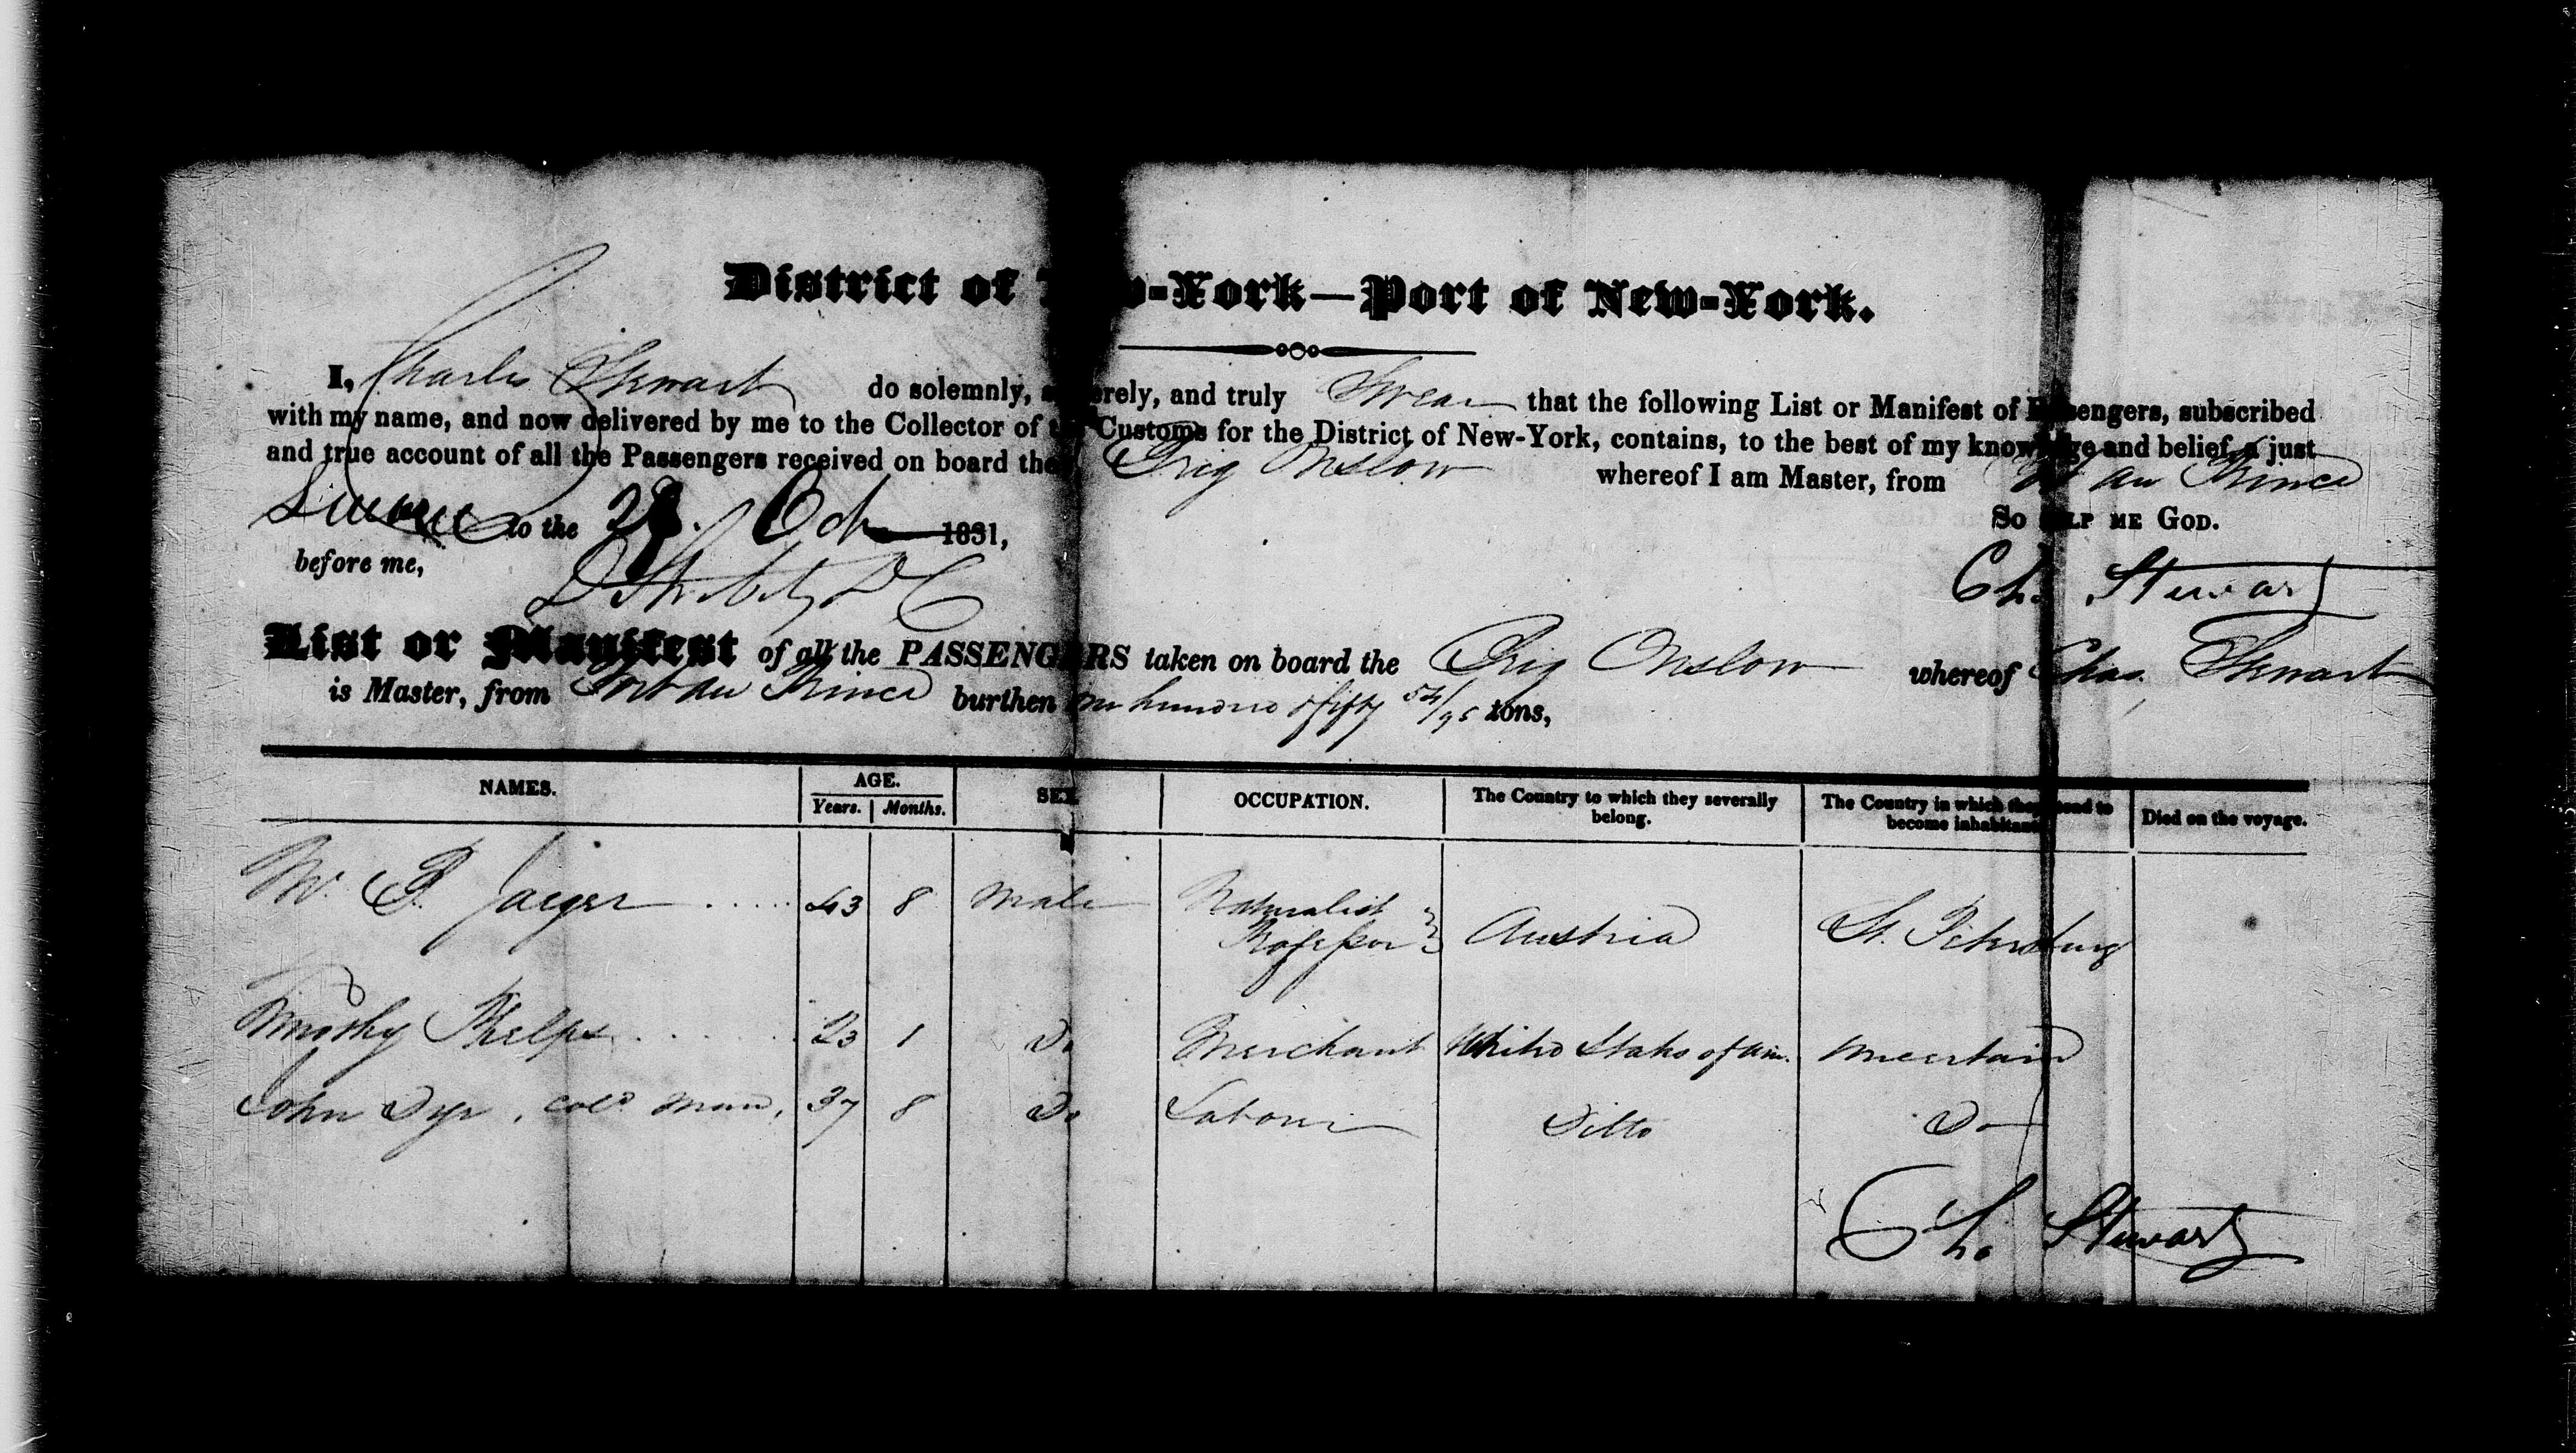 District of New-York—Port of New-York.
I, Charles Stewart do solemnly, sincerely, and truly Swear that the following List or Manifest of Passengers, subscribed
with my name, and now delivered by me to the Collector of the Customs for the District of New-York, contains, to the best of my knowledge and belief, a just
and true account of all the Passengers received on board the Brig Onslow whereof I am Master, from Pt au Prince
So HELP ME GOD.
to the 28. Oct 1831,
before me,
Chs Stewart
List or Manifest of all the PASSENGERS taken on board the Brig Onslow whereof Chas, Stewart
is Master, from Port au Prince burthen one hundred & fifty 54/95 tons,
NAMES. AGE. SEX OCCUPATION. The Country to which they severally belong. The Country in which they intend to become inhabitants Died on the voyage.
Years. Months.
Mr. B. Jaeger 43 8 Male Naturalist Professor Austria St. Petersburg
Timothy Phelps 23 1 Do Merchant United States of Am. uncertain
John Dyr, cold man, 37 8 Do Labourer Ditto Do
Chs Stewart